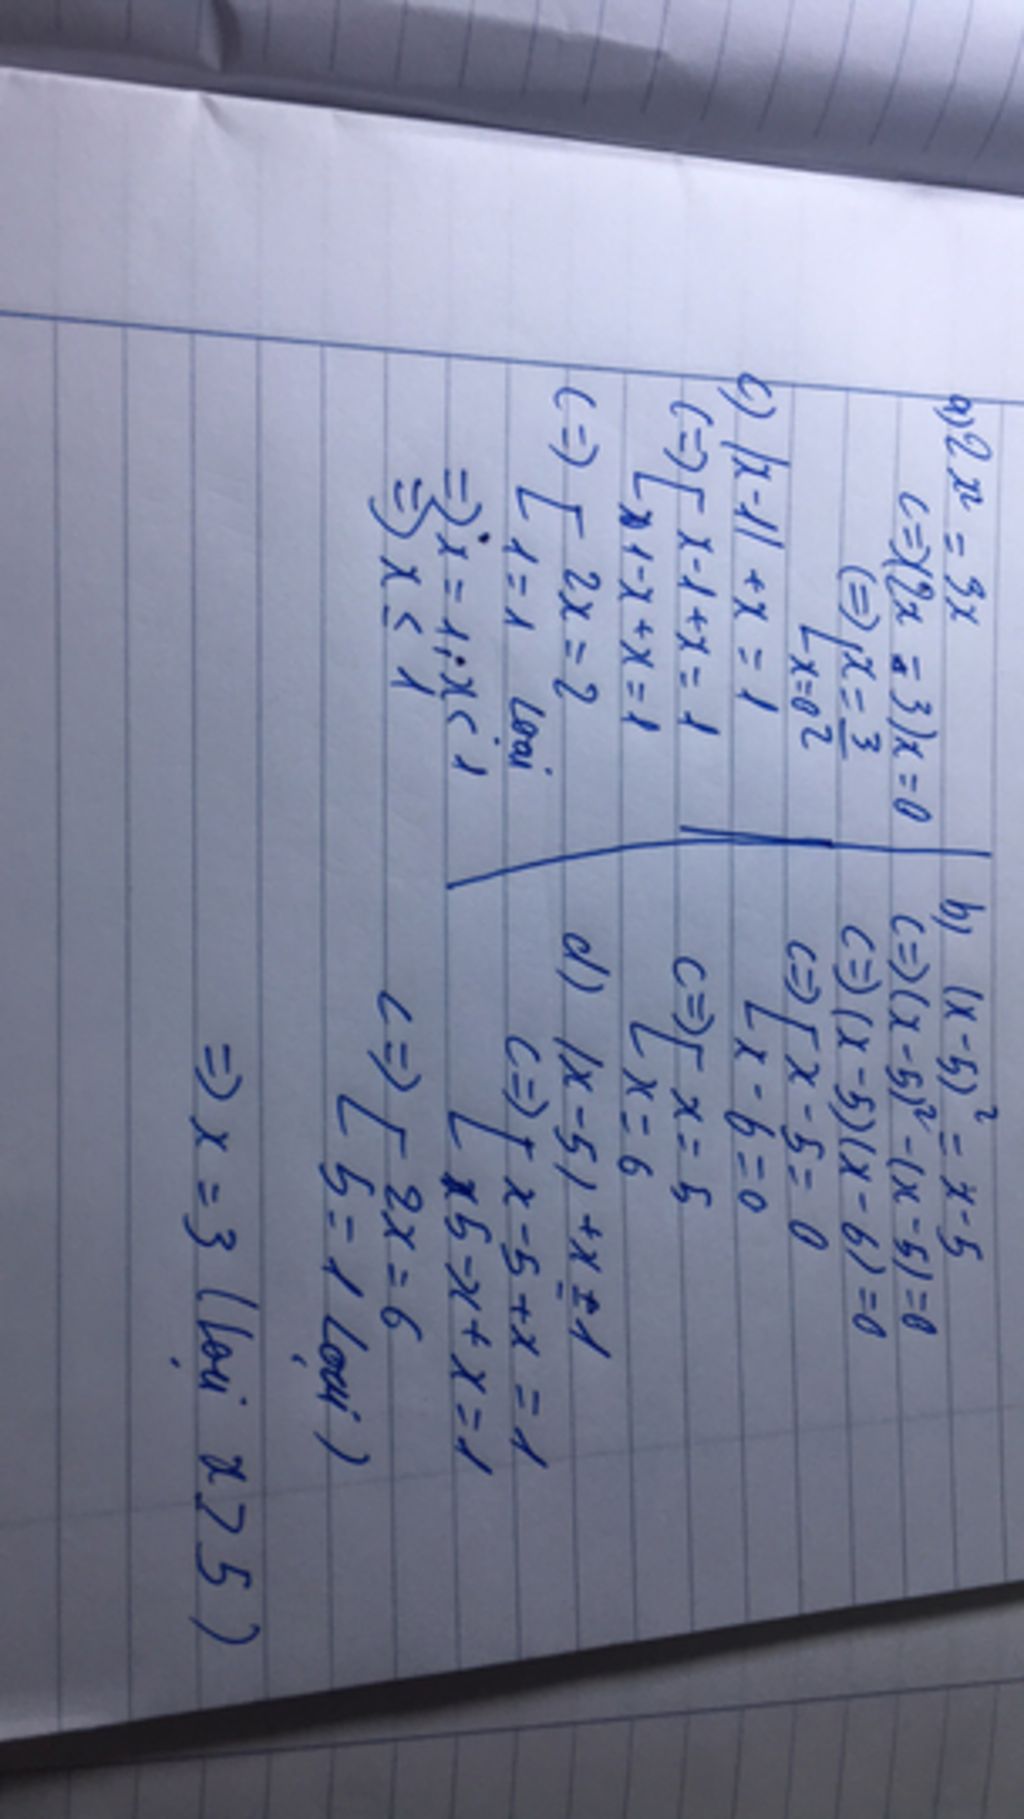 a) 2x² = 3x
<=> (2x - 3)x = 0
<=> [ x = 3/2
[ x = 0
c) |x - 1| + x = 1
<=> [ x - 1 + x = 1
[ 1 - x + x = 1
<=> [ 2x = 2
[ 1 = 1 Loại
=> x = 1; x < 1
=> x ≤ 1
b) (x - 5)² = x - 5
<=> (x - 5)² - (x - 5) = 0
<=> (x - 5)(x - 6) = 0
<=> [ x - 5 = 0
[ x - 6 = 0
<=> [ x = 5
[ x = 6
d) |x - 5| + x = 1
<=> [ x - 5 + x = 1
[ 5 - x + x = 1
<=> [ 2x = 6
[ 5 = 1 Loại )
=> x = 3 (loại x > 5)